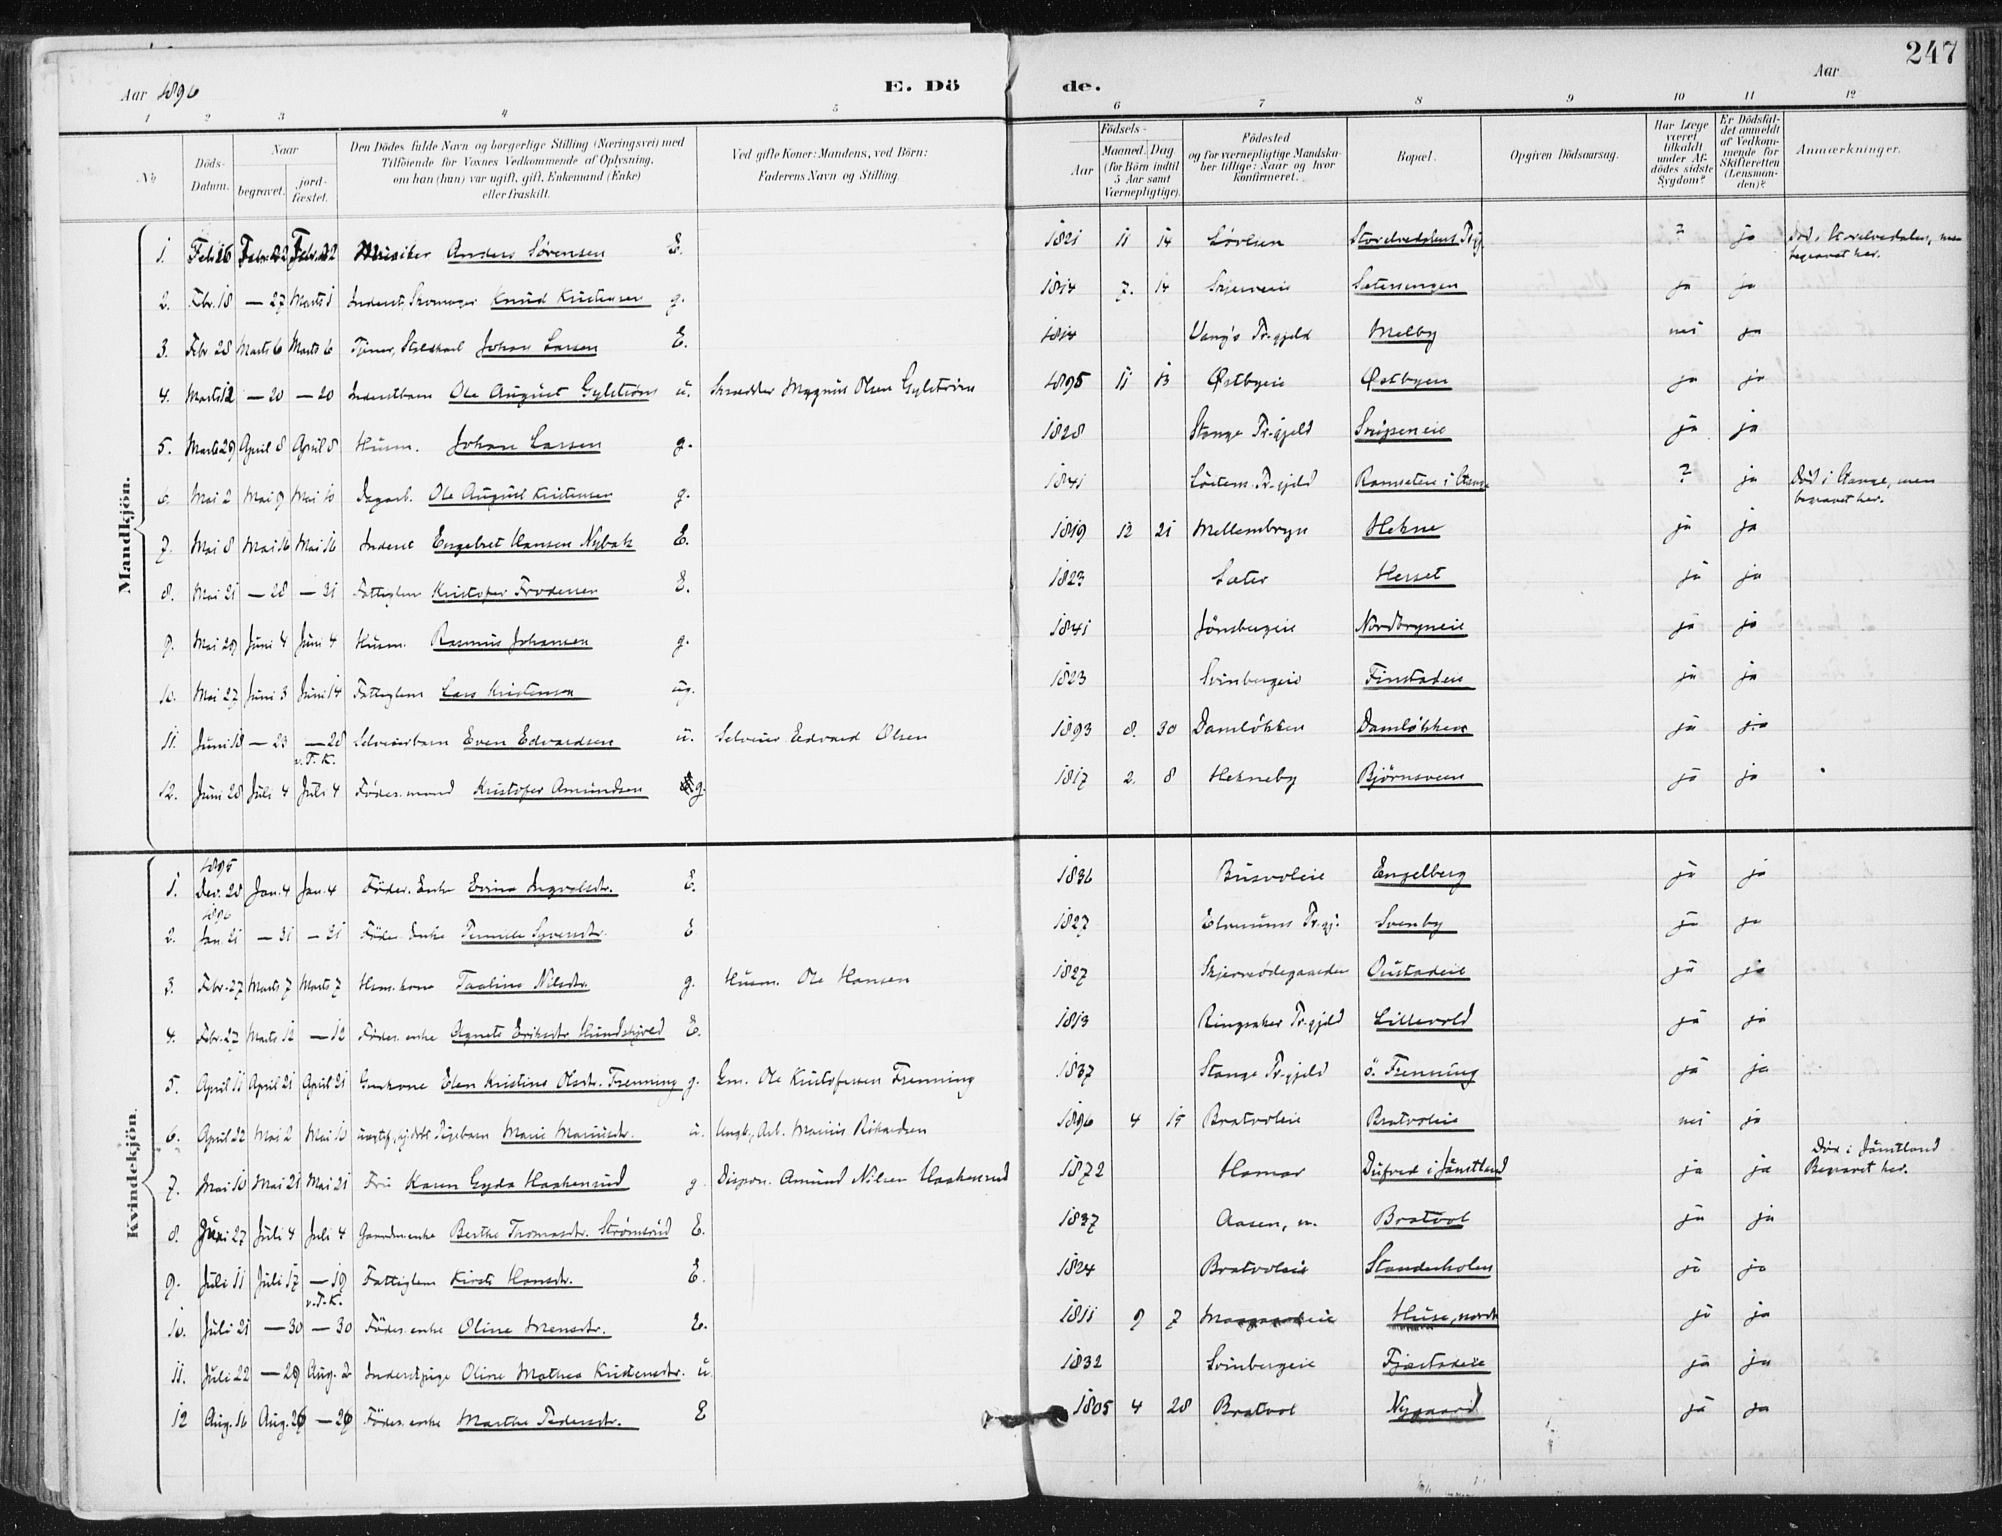 247
Aar 1896 E. Dö de. Aar
1 2 3 4 5 6 7 8 9 10 11 12
No
Döds-Datum.
Naar
begravet. jord-fæstet.
Den Dödes fulde Navn og borgerlige Stilling (Næringsvei) med
Tilföiende for Voxnes Vedkommende af Oplysning,
om han (hun) var ugift, gift, Enkemand (Enke)
eller fraskilt.
Ved gifte Koner: Mandens, ved Börn:
Faderens Navn og Stilling.
Födsels-
Aar Maaned. Dag
(for Börn indtil
5 Aar samt
Værnepligtige).
Födested
og for værnepligtige Mandska-
ber tillige: Naar og hvor
konfirmeret.
Bopæl.
Opgiven Dödsaarsag.
Har Læge
været
tilkaldt
under Af-
dödes sidste
Sygdom?
Er Dödsfal-
det anmeldt
af Vedkom-
mende for
Skifteretten
(Lensman-
den)?
Anmærkninger.
Mandkjön.
1. Feb 16 Febr. 22 Febr. 22 Musiker Anders Sörensen E. 1821 11 14 Storelvedalens Prgj. ? ja Död i Storelvedalen, men begravet her.
2. Febr. 18 — 27 Marts 1 Inderst, Skomager Knud Kristensen g. 1814 7. 14 Skjerveie Sætersengen ja ja
3. Febr 28 Marts 6 Marts 6 Tjener, Staldkarl Johan Larsen E. 1814 Vang's Pr.gjeld Melby nei ja
4. Marts 12 — 20 — 20 Inderstbarn Ole August Gylström u. Skrædder Magnus Olsen Gylström 1895 11 13 Østbyeie Østbyen ja ja
5. Marts 29 April 8 April 8 Husm. Johan Larsen g. 1828 Stange Pr.gjeld ja ja
6. Mai 2 Mai 9 Mai 10 Dagarb. Ole August Kristensen g. 1841 Löitens Pr.gjeld Ramseteie i Stange ? ja Död i Stange, men begravet her.
7. Mai 8 Mai 16 Mai 16 Inderst Engebret Hansen Nybak E. 1819 12 21 Mellembryn Hekne ja ja
8. Mai 21 — 28 — 31 Fattiglem Kristofer Frodesen E. 1823 Sæter Hesset ja ja
9. Mai 29 Juni 4 Juni 4 Husm. Rasmus Johansen g. 1841 Jönsbergeie Nordbryneie ja ja
10. Mai 27 Juni 3 Juni 14 Fattiglem Lars Kristensen ug. 1823 Svinbergeie Finstadeie ja ja
11. Juni 18 — 23 — 28 v. T. K. Selveierbarn Even Edvardsen u. Selveier Edvard Olsen 1893 8. 30 Damløkken Damløkken ja ja
12. Juni 28 Juli 4 Juli 4 Födes.mand Kristofer Amundsen g. 1817 2. 8 Hekneby Bjørnsveen ja ja
Kvindekjön.
1. 1895 Dec. 28 Jan. 4 Jan. 4 Födes. Enke Ingvalsdtr. E. 1836 Busvoleie Engelberg ja ja
2. 1896 Jan. 21 — 31 — 31 Födes. Enke Syversdtr. E 1827 Elverums Pr.gj. Svenby ja ja
3. Febr. 27 Marts 7 Marts 7 Husm. kone Paaline Nilsdtr. g. Husm. Ole Hansen 1827 Skjerveødegaarden Oustadeie ja ja
4. Febr. 27 Marts 12 — 12 Födes. enke Agnete Eriksdtr. Hundskjold E. 1813 Ringsaker Pr.gjeld Lillevold ja ja
5. April 11 April 21 April 21 Gmkone Elen Kristine Olsdtr. Frenning g. Gm. Ole Kristofersen Frenning 1837 Stange Pr.gjeld ö. Frenning ja ja
6. April 22 Mai 2 Mai 10 uægtef., hj.döbt Pigebarn Marie Mariusdtr. u. Ungk., Arb. Marius Rikardsen 1896 4 15 Bratvoleie Bratvoleie nei ja
7. Mai 10 Mai 21 Mai 21 Fru Karen Gyda Haakensrud g. Dispon. Amund Nilsen Haakensrud 1872 Hamar Dufved i Jämtland ja ja Död i Jämtland Begravet her.
8. Juni 27 Juli 4 Juli 4 Gaardm.enke Berthe Thomasdtr. Strömsrud E. 1837 Aasen, n. Bratvol ja ja
9. Juli 11 Juli 17 — 19 v. T. K. Fattiglem Kirsti Hansdtr. E. 1824 Bratvoleie Standerholen ja ja
10. Juli 21 — 30 — 30 Födes. enke Oline Mensdtr. E. 1811 9 7 Huse, nordr. ja ja
11. Juli 22 — 29 Aug. 2 Inderstpige Oline Mathea Kristensdtr. u. 1832 Svinbergeie Fjæstadeie ja ja
12 Aug. 16 Aug. 26 — 26 Födes. enke Marthe Pedersdtr. E 1805 4 28 Bratvol Nygaard ja ja